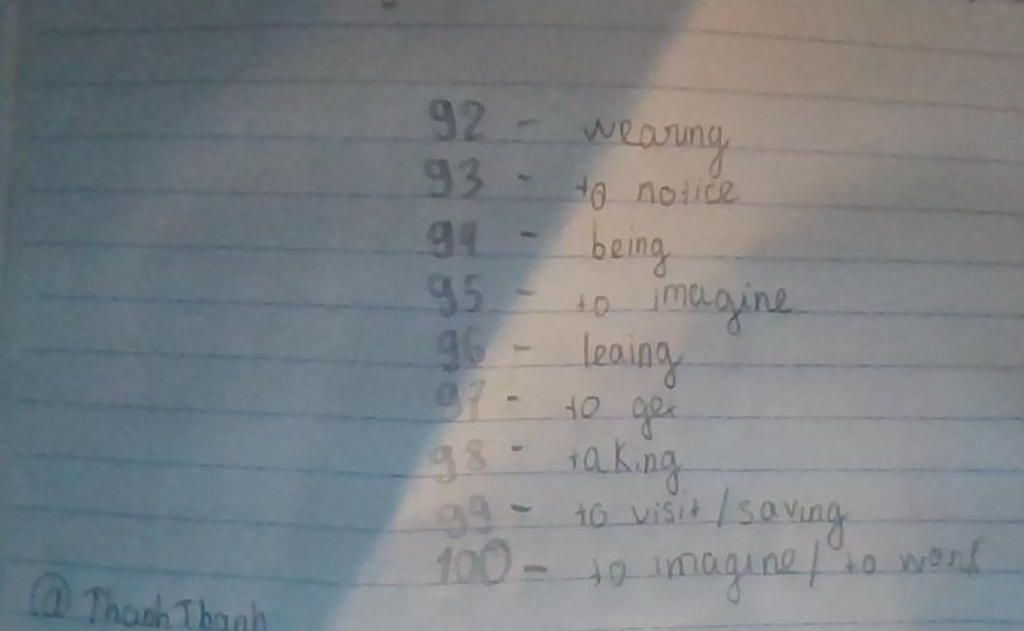 92 - wearing
93 - to notice
94 - being
95 - to imagine
96 - leaing
97 - to get
98 - taking
99 - to visit / saving
100 - to imagine / to work
@ ThanhThanh